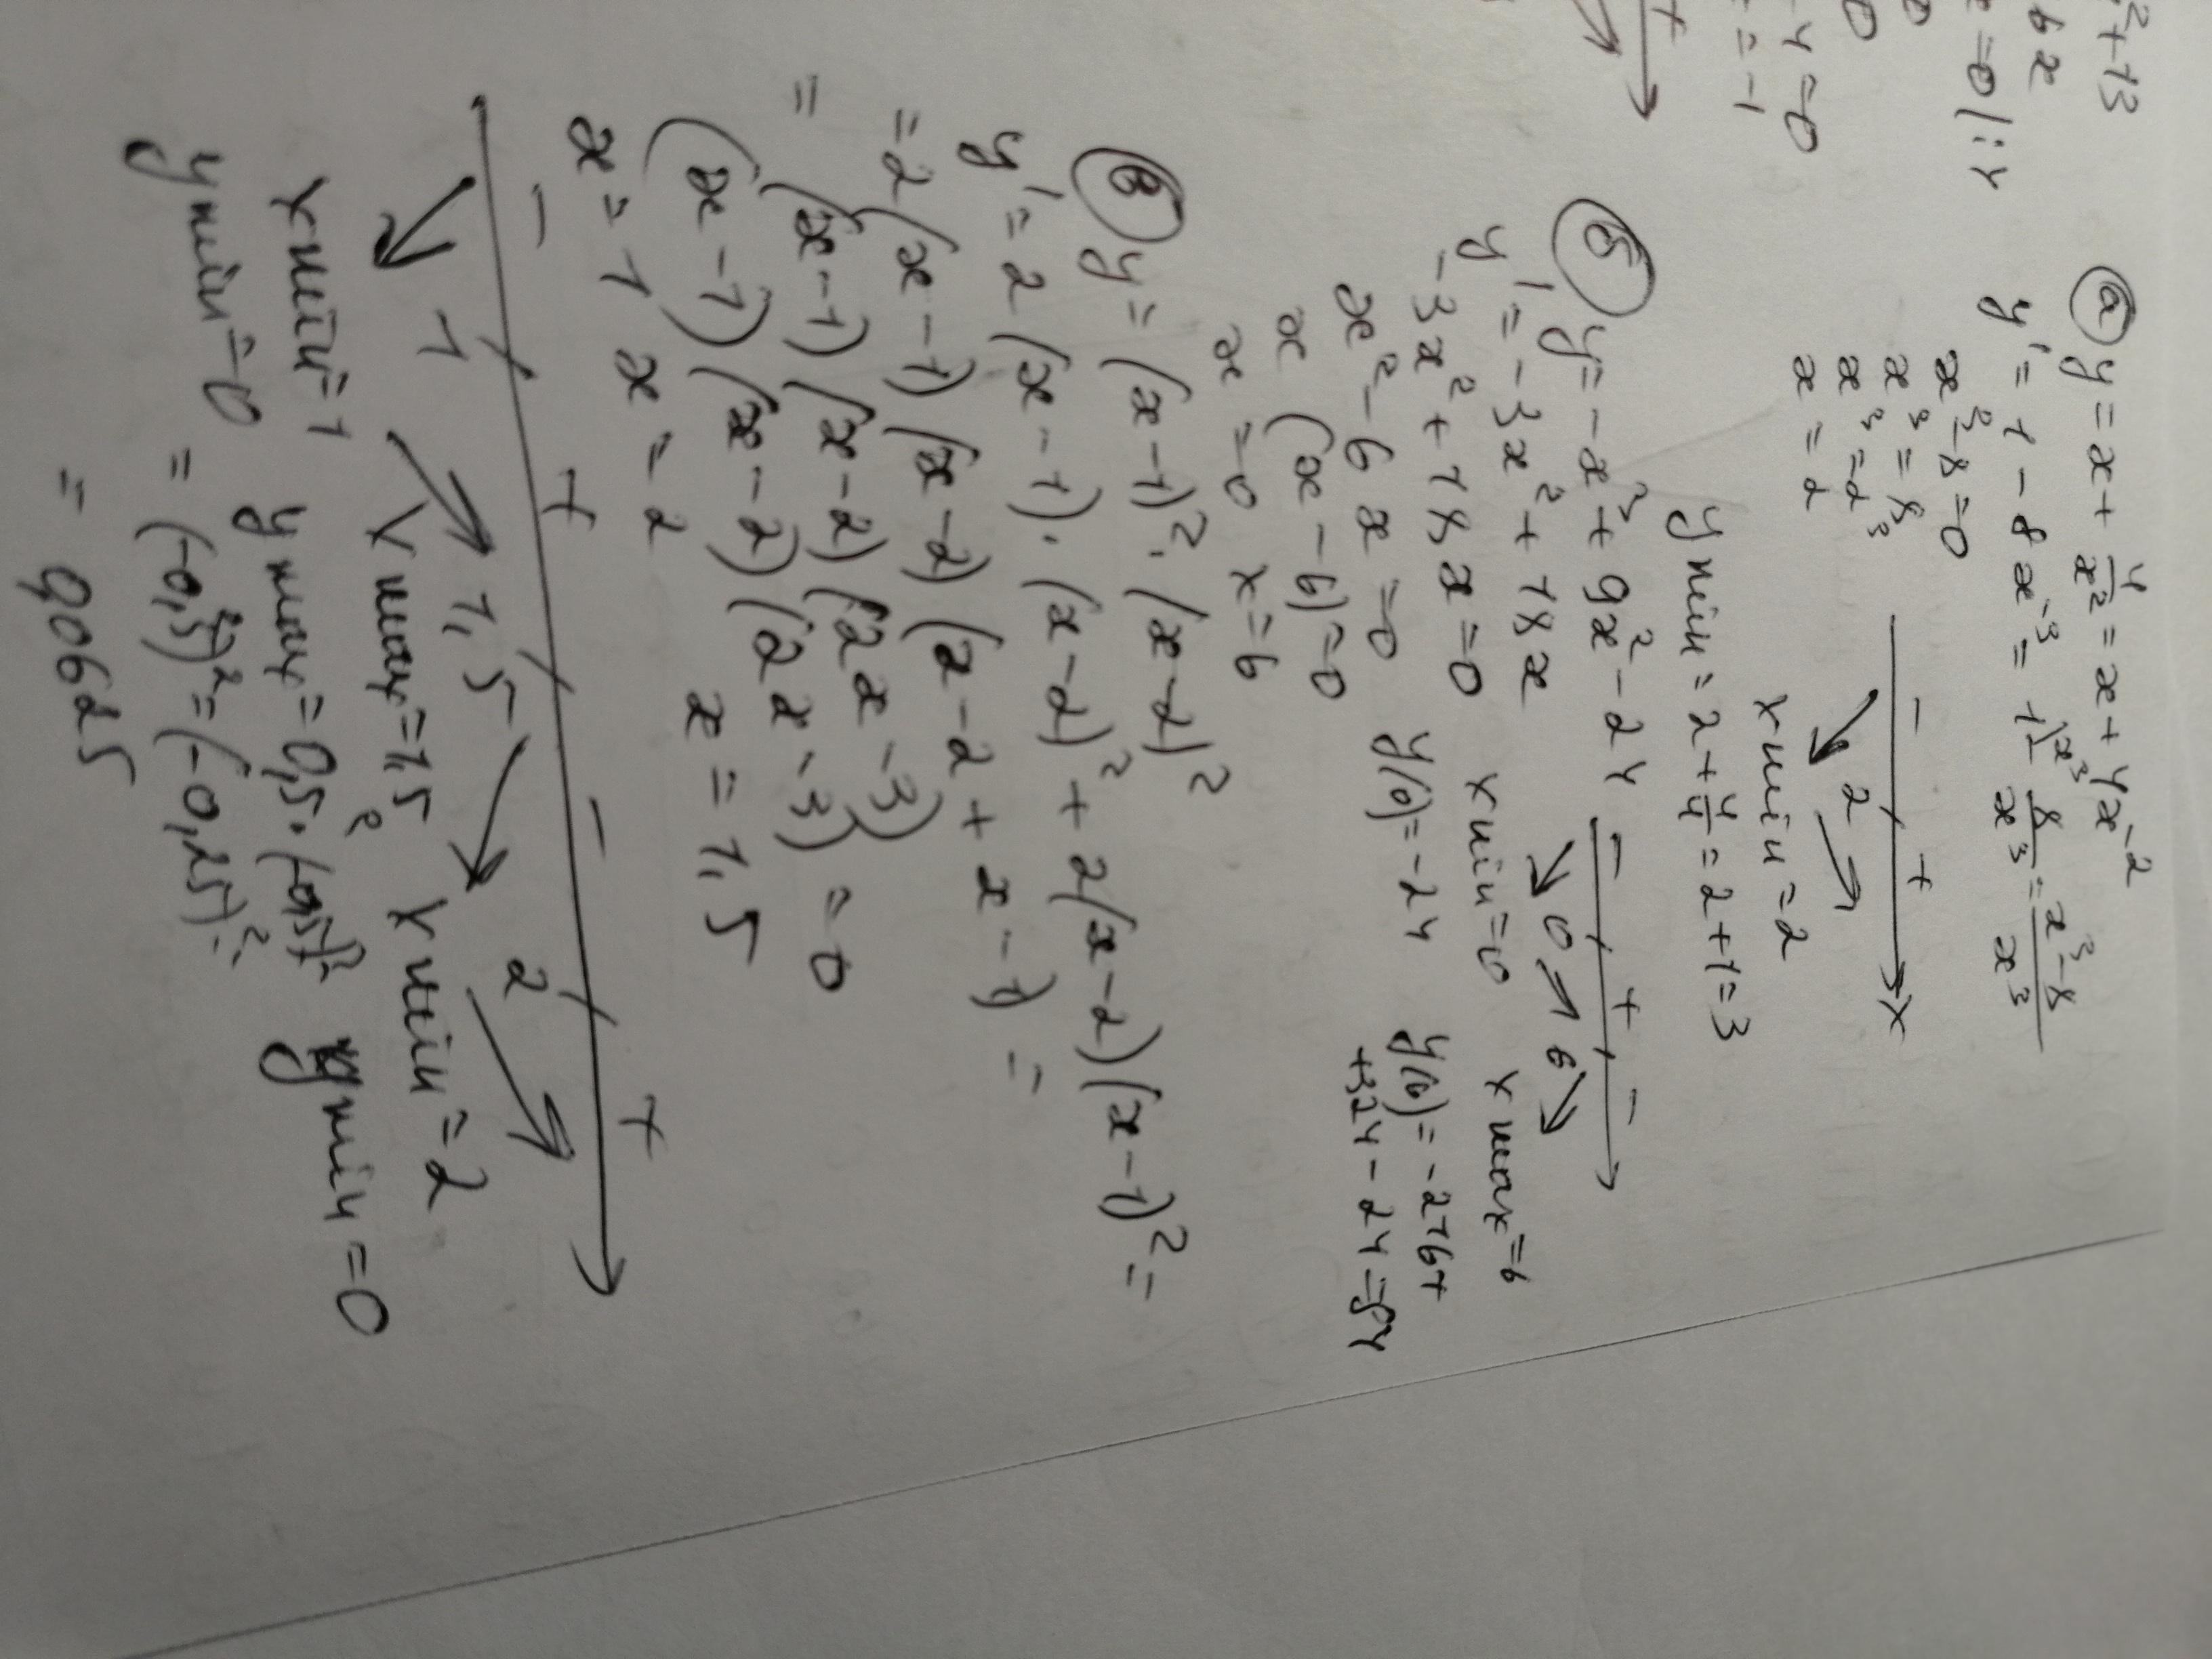 ²+13
6x
=0 |:4
-4=0
=-1
+
а) y = x + 4/x² = x + 4x⁻²
y' = 1 - 8x⁻³ = 1 - 8/x³ = x³-8/x³
x³-8=0
x³=8
x³=2³
x=2
- + x
2
x min = 2
y min = 2 + 4/4 = 2+1=3
б) y = -x³ + 9x² - 24
y' = -3x² + 18x
-3x² + 18x = 0
x² - 6x = 0
x (x - 6) = 0
x = 0 x = 6
- + -
0 6
x min = 0 x max = 6
y(0) = -24 y(6) = -216+
+324 - 24 = 84
в) y = (x-1)² · (x-2)²
y' = 2(x-1) · (x-2)² + 2(x-2)(x-1)² =
= 2(x-1)(x-2)(x-2+x-1) =
= (x-1)(x-2)(2x-3)
(x-1)(x-2)(2x-3) = 0
x = 1 x = 2 x = 1,5
- + - +
1 1,5 2
x min = 1 x max = 1,5 x min = 2
y min = 0 y max = 0,5² · (-0,5)² y min = 0
= (-0,5²)² = (-0,25)² =
= 0,0625